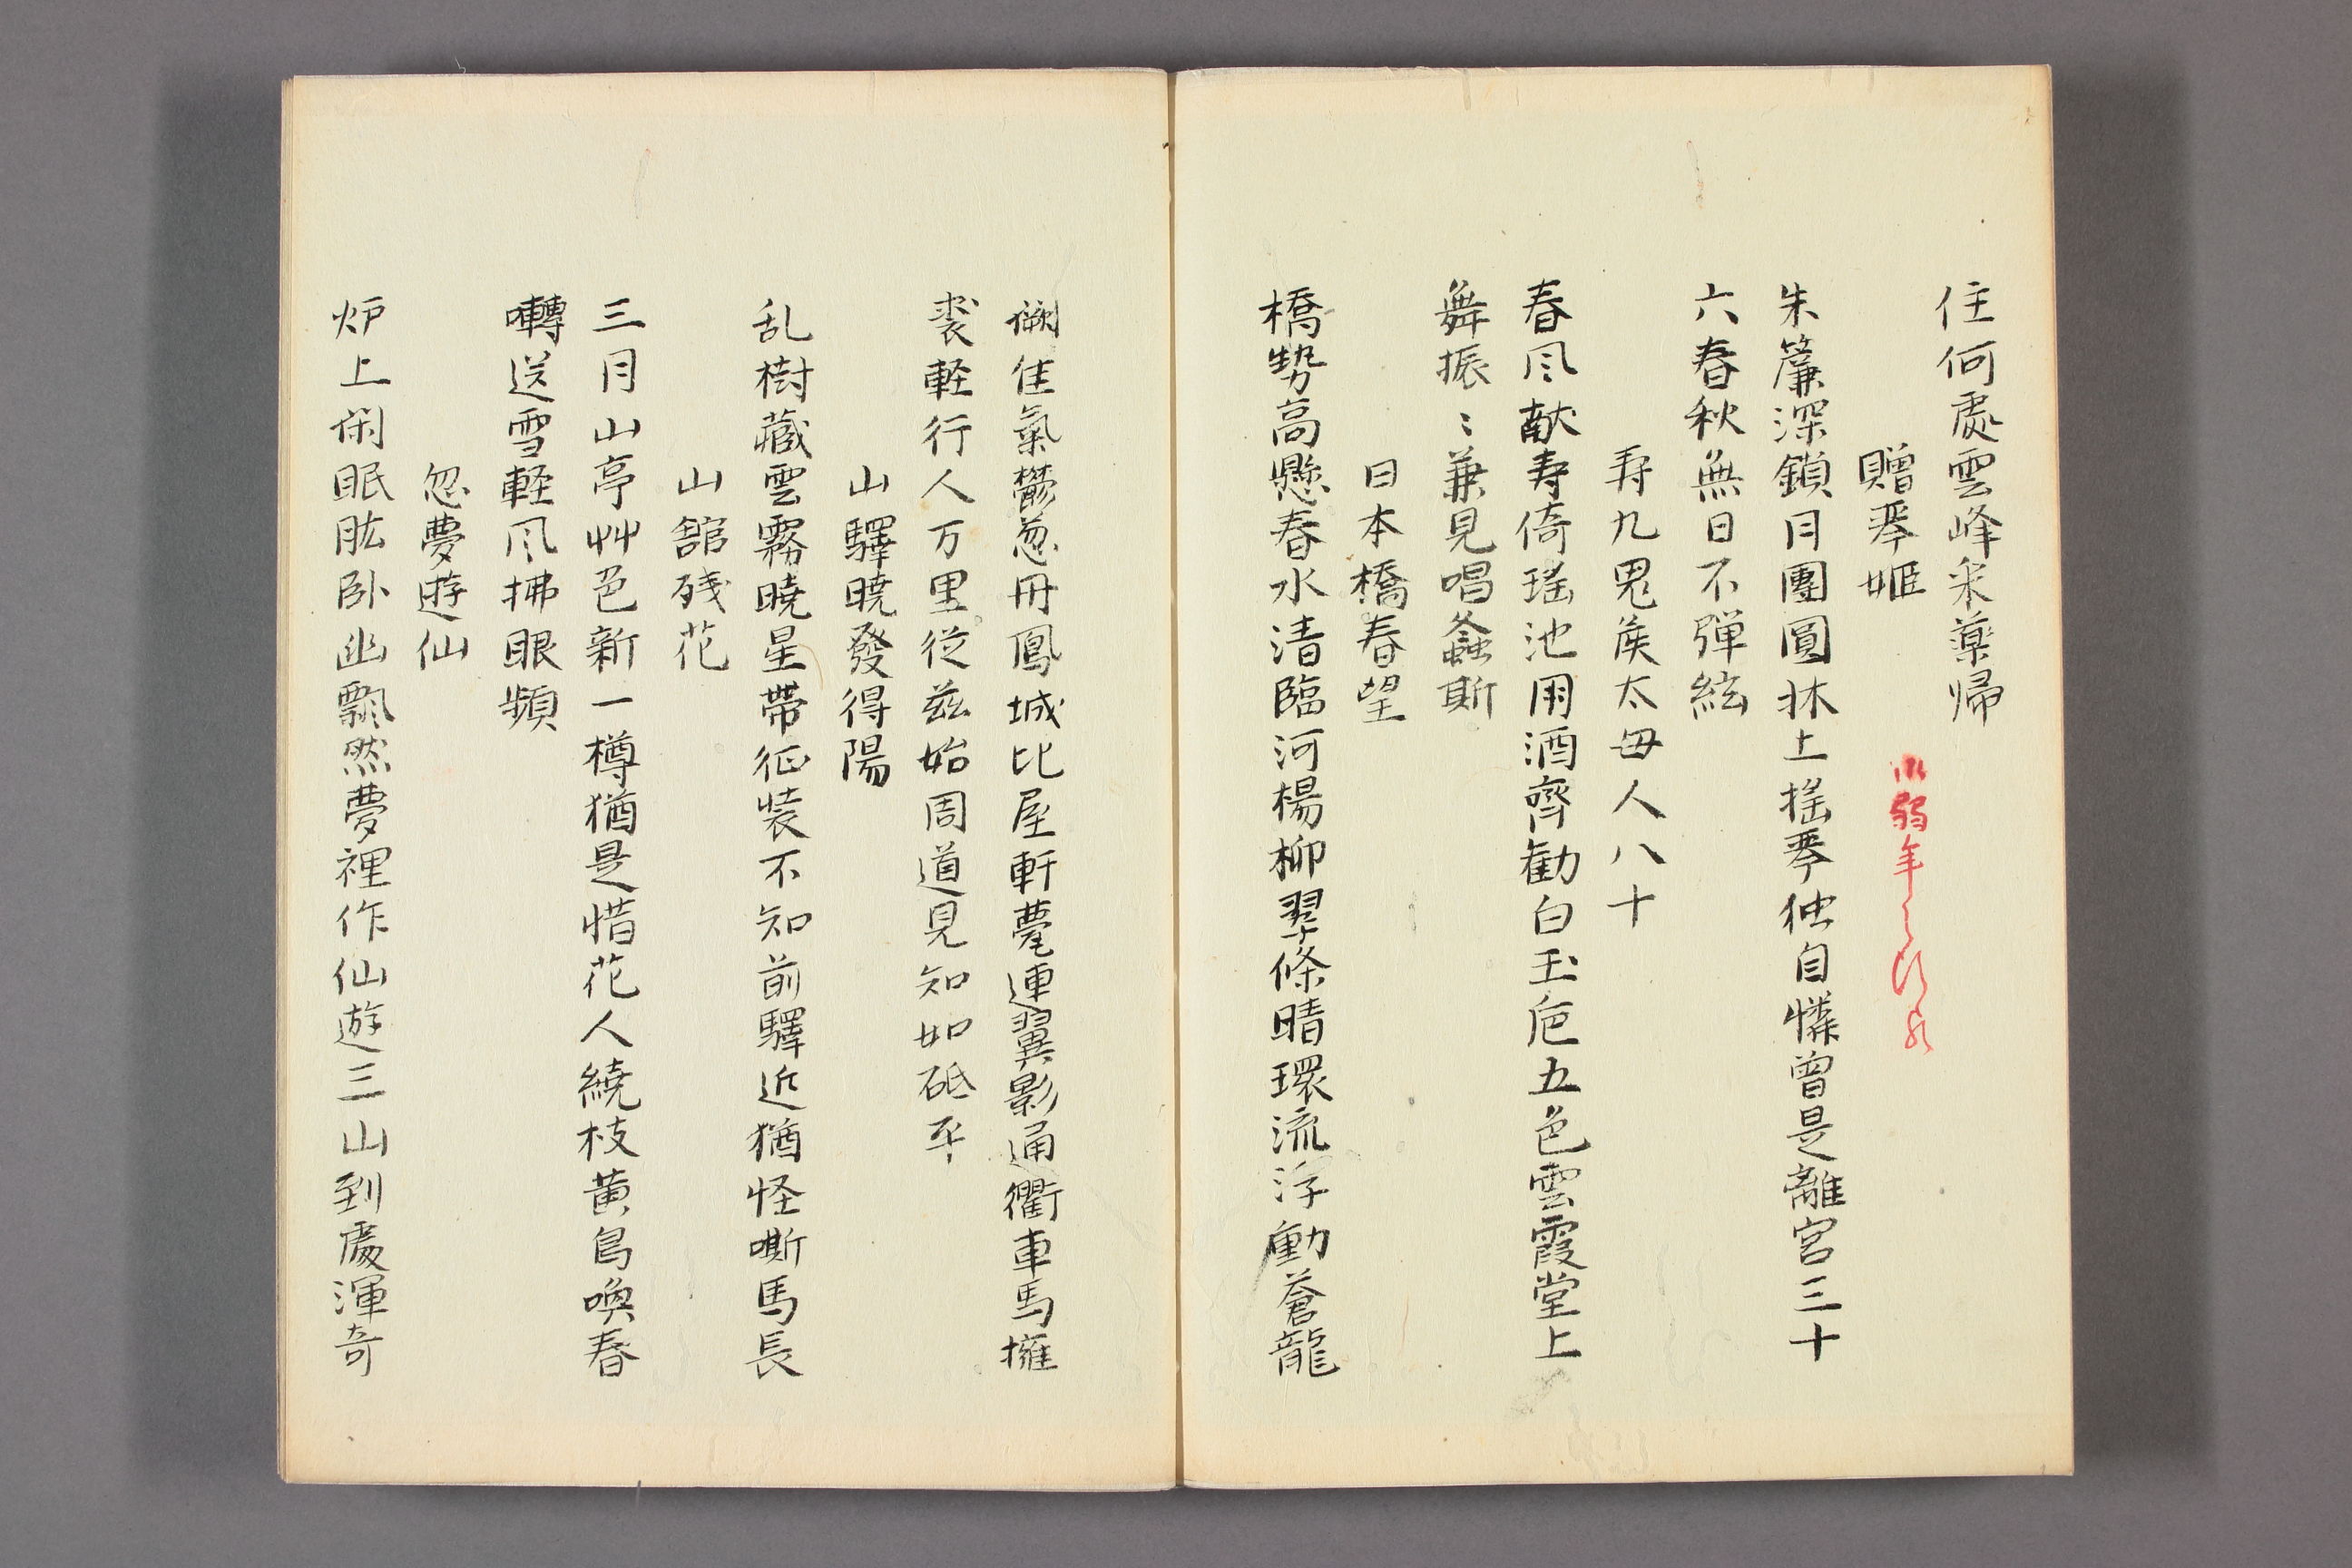 住何處雲峰采薬帰
贈琴姬
朱簾深鎖月團圓牀上搖琴独自憐曽是離宮三十
六春秋無日不彈絃
寿九鬼侯太毋人八十
春风献寿倚瑤池用酒齊勧白玉巵五色雲霞堂上
舞振〻兼見唱螽斯
日本橋春望
橋勢高懸春水清臨河楊柳翠條晴環流浮動蒼龍
佳氣鬱葱丹鳳城比屋軒甍連翼影通衢車馬擁
裘軽行人万里従兹始周道見知如砥平
山驛暁發得陽
乱樹藏雲霧暁星帶征装不知前驛近猶怪嘶馬長
山舘残花
三月山亭艸色新一樽猶是惜花人繞枝黄鳥喚春
囀送雪軽风拂眼頻
忽夢遊仙
炉上閑眠肱卧幽飄然夢裡作仙遊三山到處渾奇
弱年